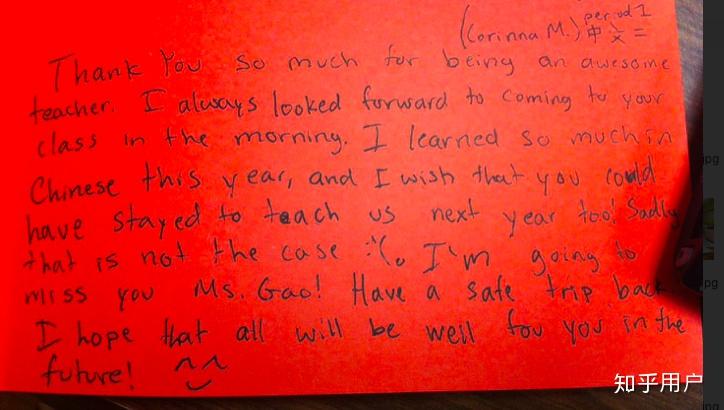 (Corinna M.) period 1
中文二
Thank You so much for being an awesome
teacher. I always looked forward to coming to your
class in the morning. I learned so much in
Chinese this year, and I wish that you could
have stayed to teach us next year too! Sadly
that is not the case :'(. I'm going to
miss you Ms. Gao! Have a safe trip back
I hope that all will be well for you in the
future! ^‿^
知乎用户
jpg
jpg
jpg